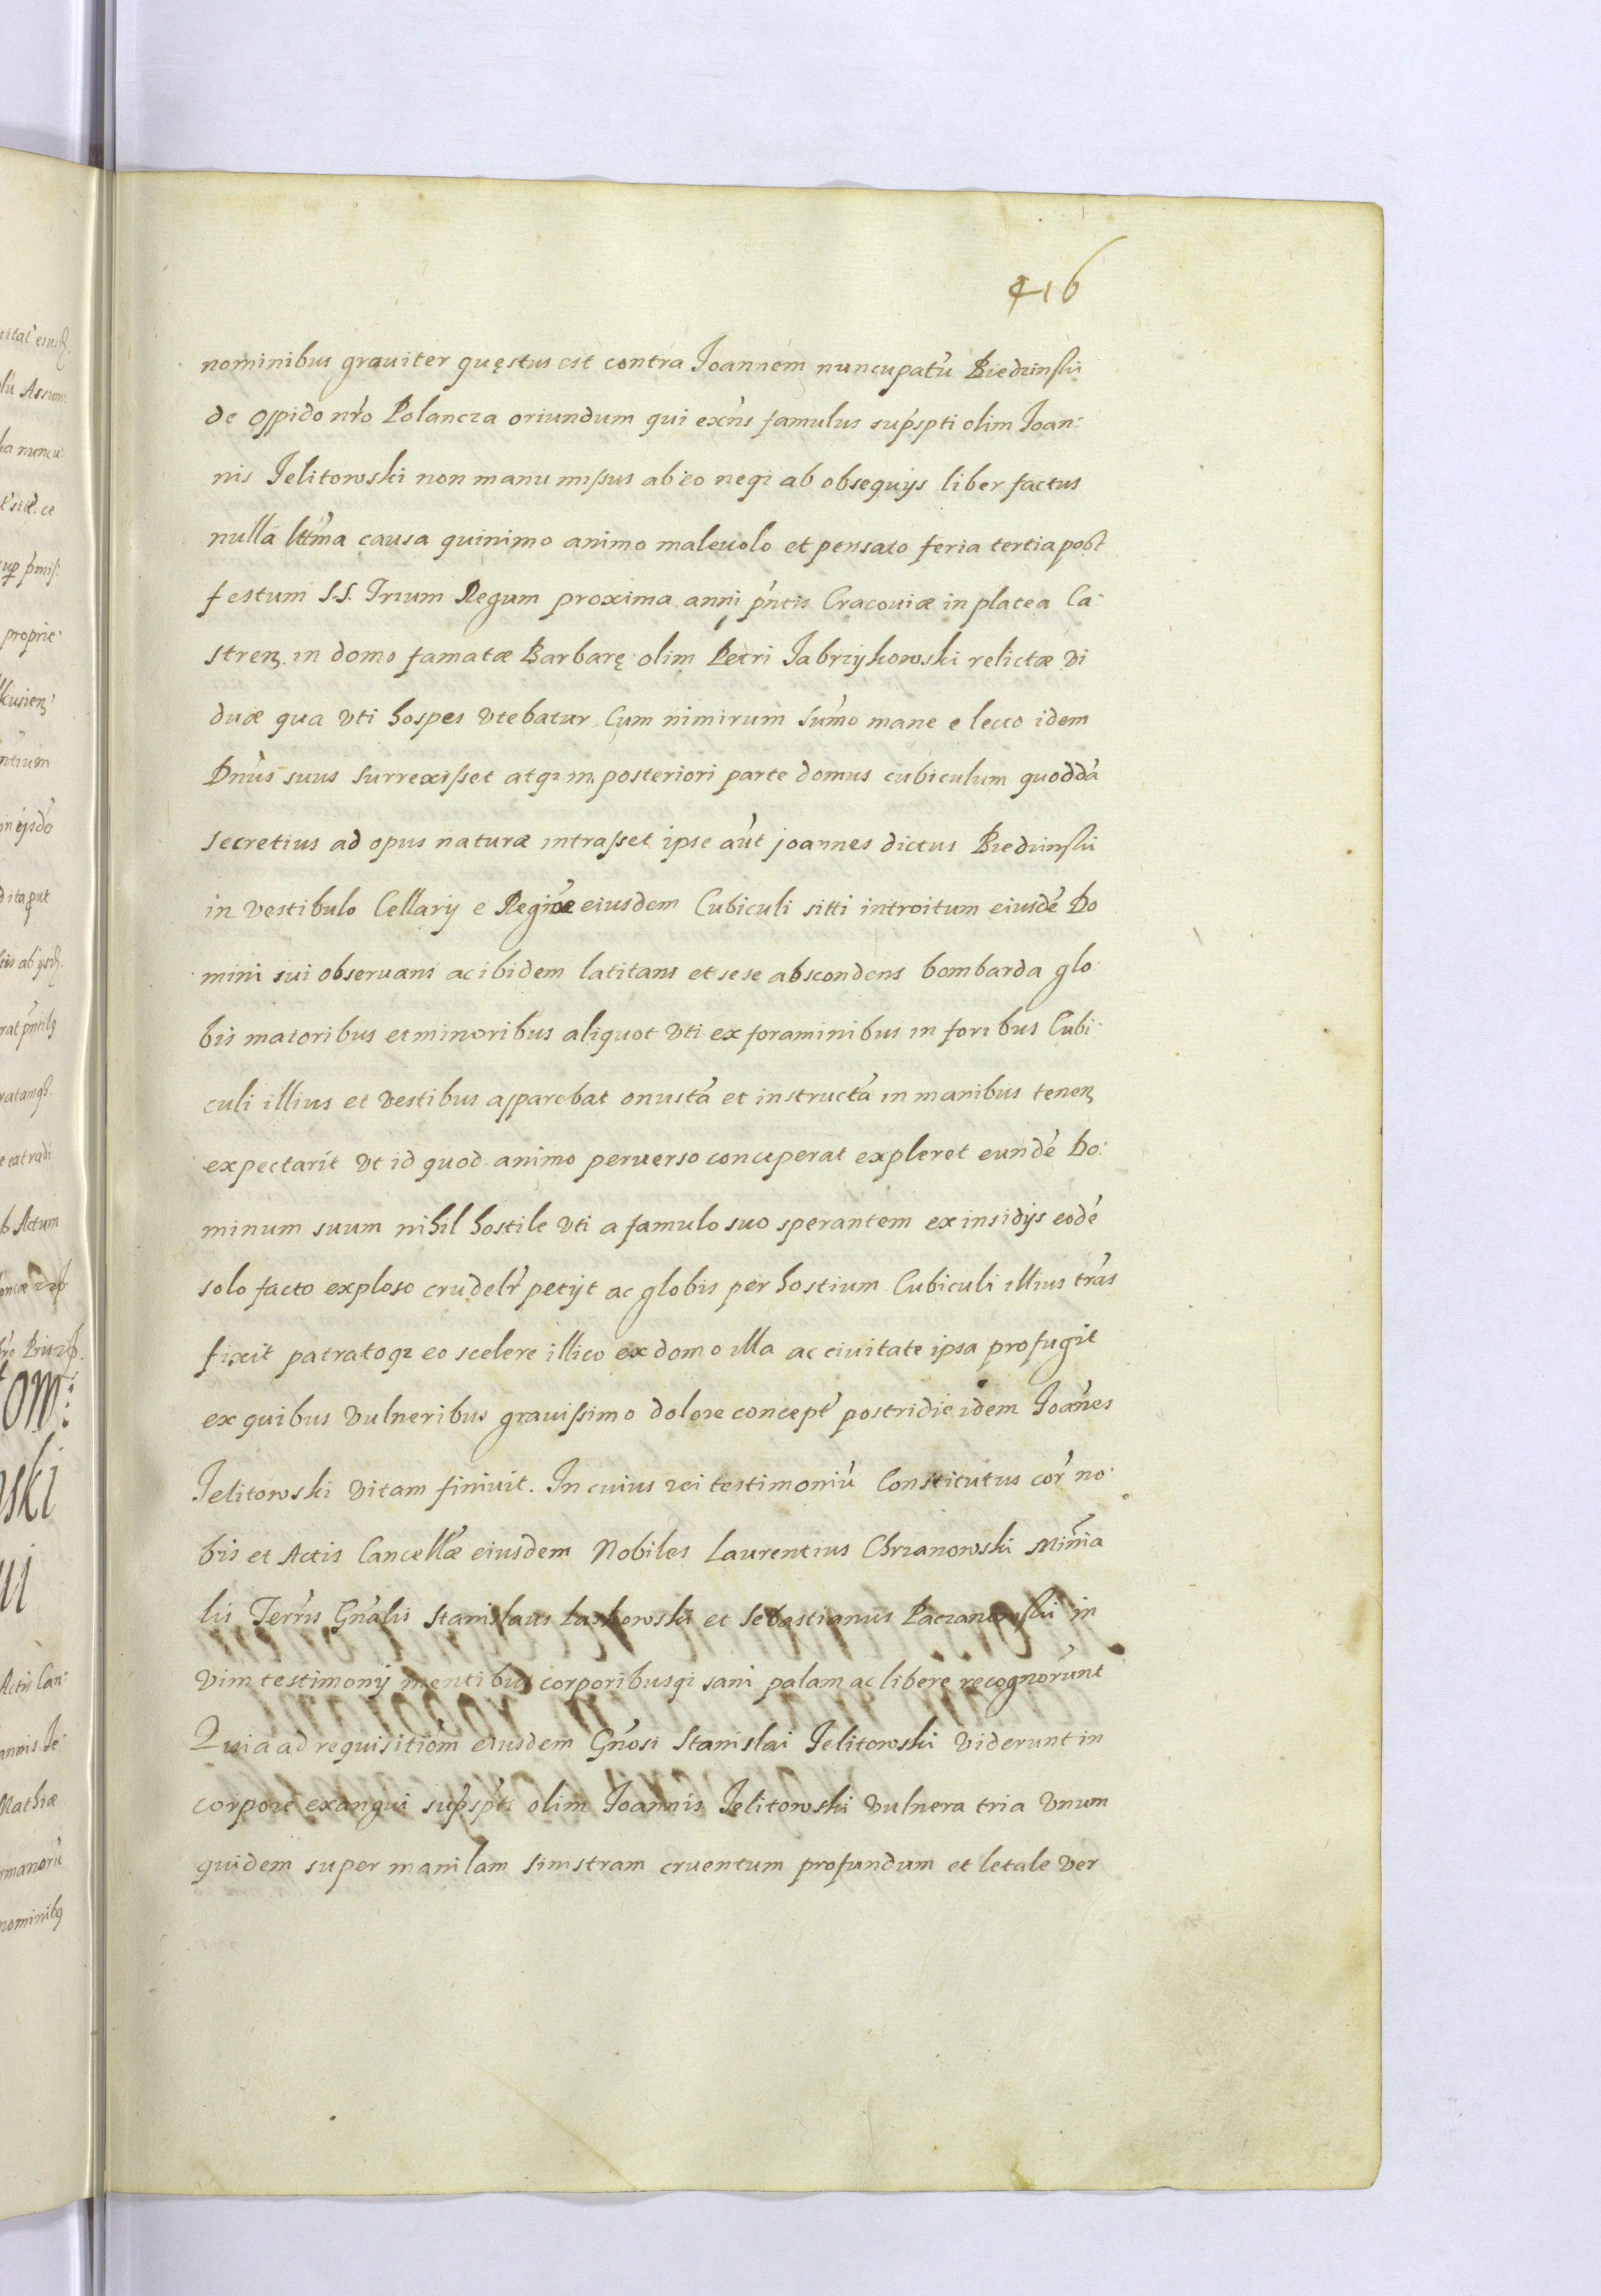 416
nominibus grauiter quęstus est contra Joannem nuncupatũ Biedzinski
de oppido nr̃o Polancza oriundum qui exñs famulus supr̃spti olim Joan:
nis Jelitowski non manu missus ab eo neqz ab obsequijs liber factus
nulla lttm̃a causa quinimo animo maleuolo et pensato feria tertia post
festum S.S. Trium Regum proxima anni pñtis Cracouiæ in platea Ca:
strenz. in domo famatæ Barbarę olim Petri Jabrzykowski relictæ vi
duæ qua vti hospes vtebatur Cum nimirum sum̃o mane e lecto idem
Dnũs suus surrexisset atqz in posteriori parte domus cubiculum quoddã
secretius ad opus naturæ intrasset ipse aũt joannes dictus Biedzinski
in vestibulo Cellarij e Regiõe eiusdem Cubiculi sitti introitum eiusdẽ Do
mini sui obseruans ac ibidem latitans et sese abscondens bombarda glo:
bis maioribus et minoribus aliquot vti ex foraminibus in foribus Cubi:
culi illius et vestibus apparebat onustã et instructã in manibus tenenz
expectarit vt id quod animo peruerso conceperat expleret eundẽ Do:
minum suum nihil hostile vti a famulo suo sperantem ex insidijs eodẽ
solo facto exploso crudelr̃ petijt ac globis per hostium Cubiculi illius trãs
fixit patratoqz eo scelere illico ex domo illa ac ciuitate ipsa profugit
ex quibus vulneribus grauissimo dolore concept̃ postridie idem Joañes
Jelitowski vitam finiuit. In cuius rei testimoniũ Constitutus cor̃ no:
bis et Actis Cancellr̃æ eiusdem Nobiles Laurentius Chrzanowski Minr̃ia
lis Terr̃is Gñalis Stanislaus Laskowski et Sebastianus Paczanowski in
vim testimonij mentibus corporibusqz sani palam ac libere recognorũnt
Quia ad requisitiõm eiusdem Gñosi Stanislai Jelitowski viderunt in
corpore exangui supr̃spti olim Joannis Jelitowski vulnera tria vnum
quidem super manilam sinistram cruentum profundum et letale ver